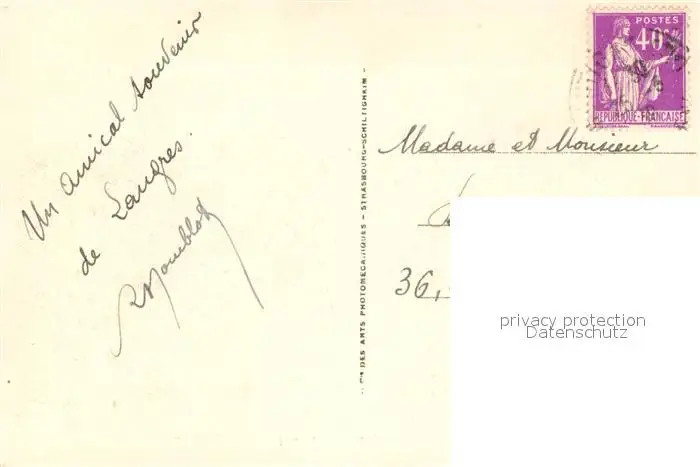 Un amical souvenir
de Langres.
Cie DES ARTS PHOTOMECANIQUES - STRASBOURG-SCHILTIGHEIM -
POSTES
40c
REPUBLIQUE-FRANCAISE
Madame et Monsieur
36,
privacy protection
Datenschutz